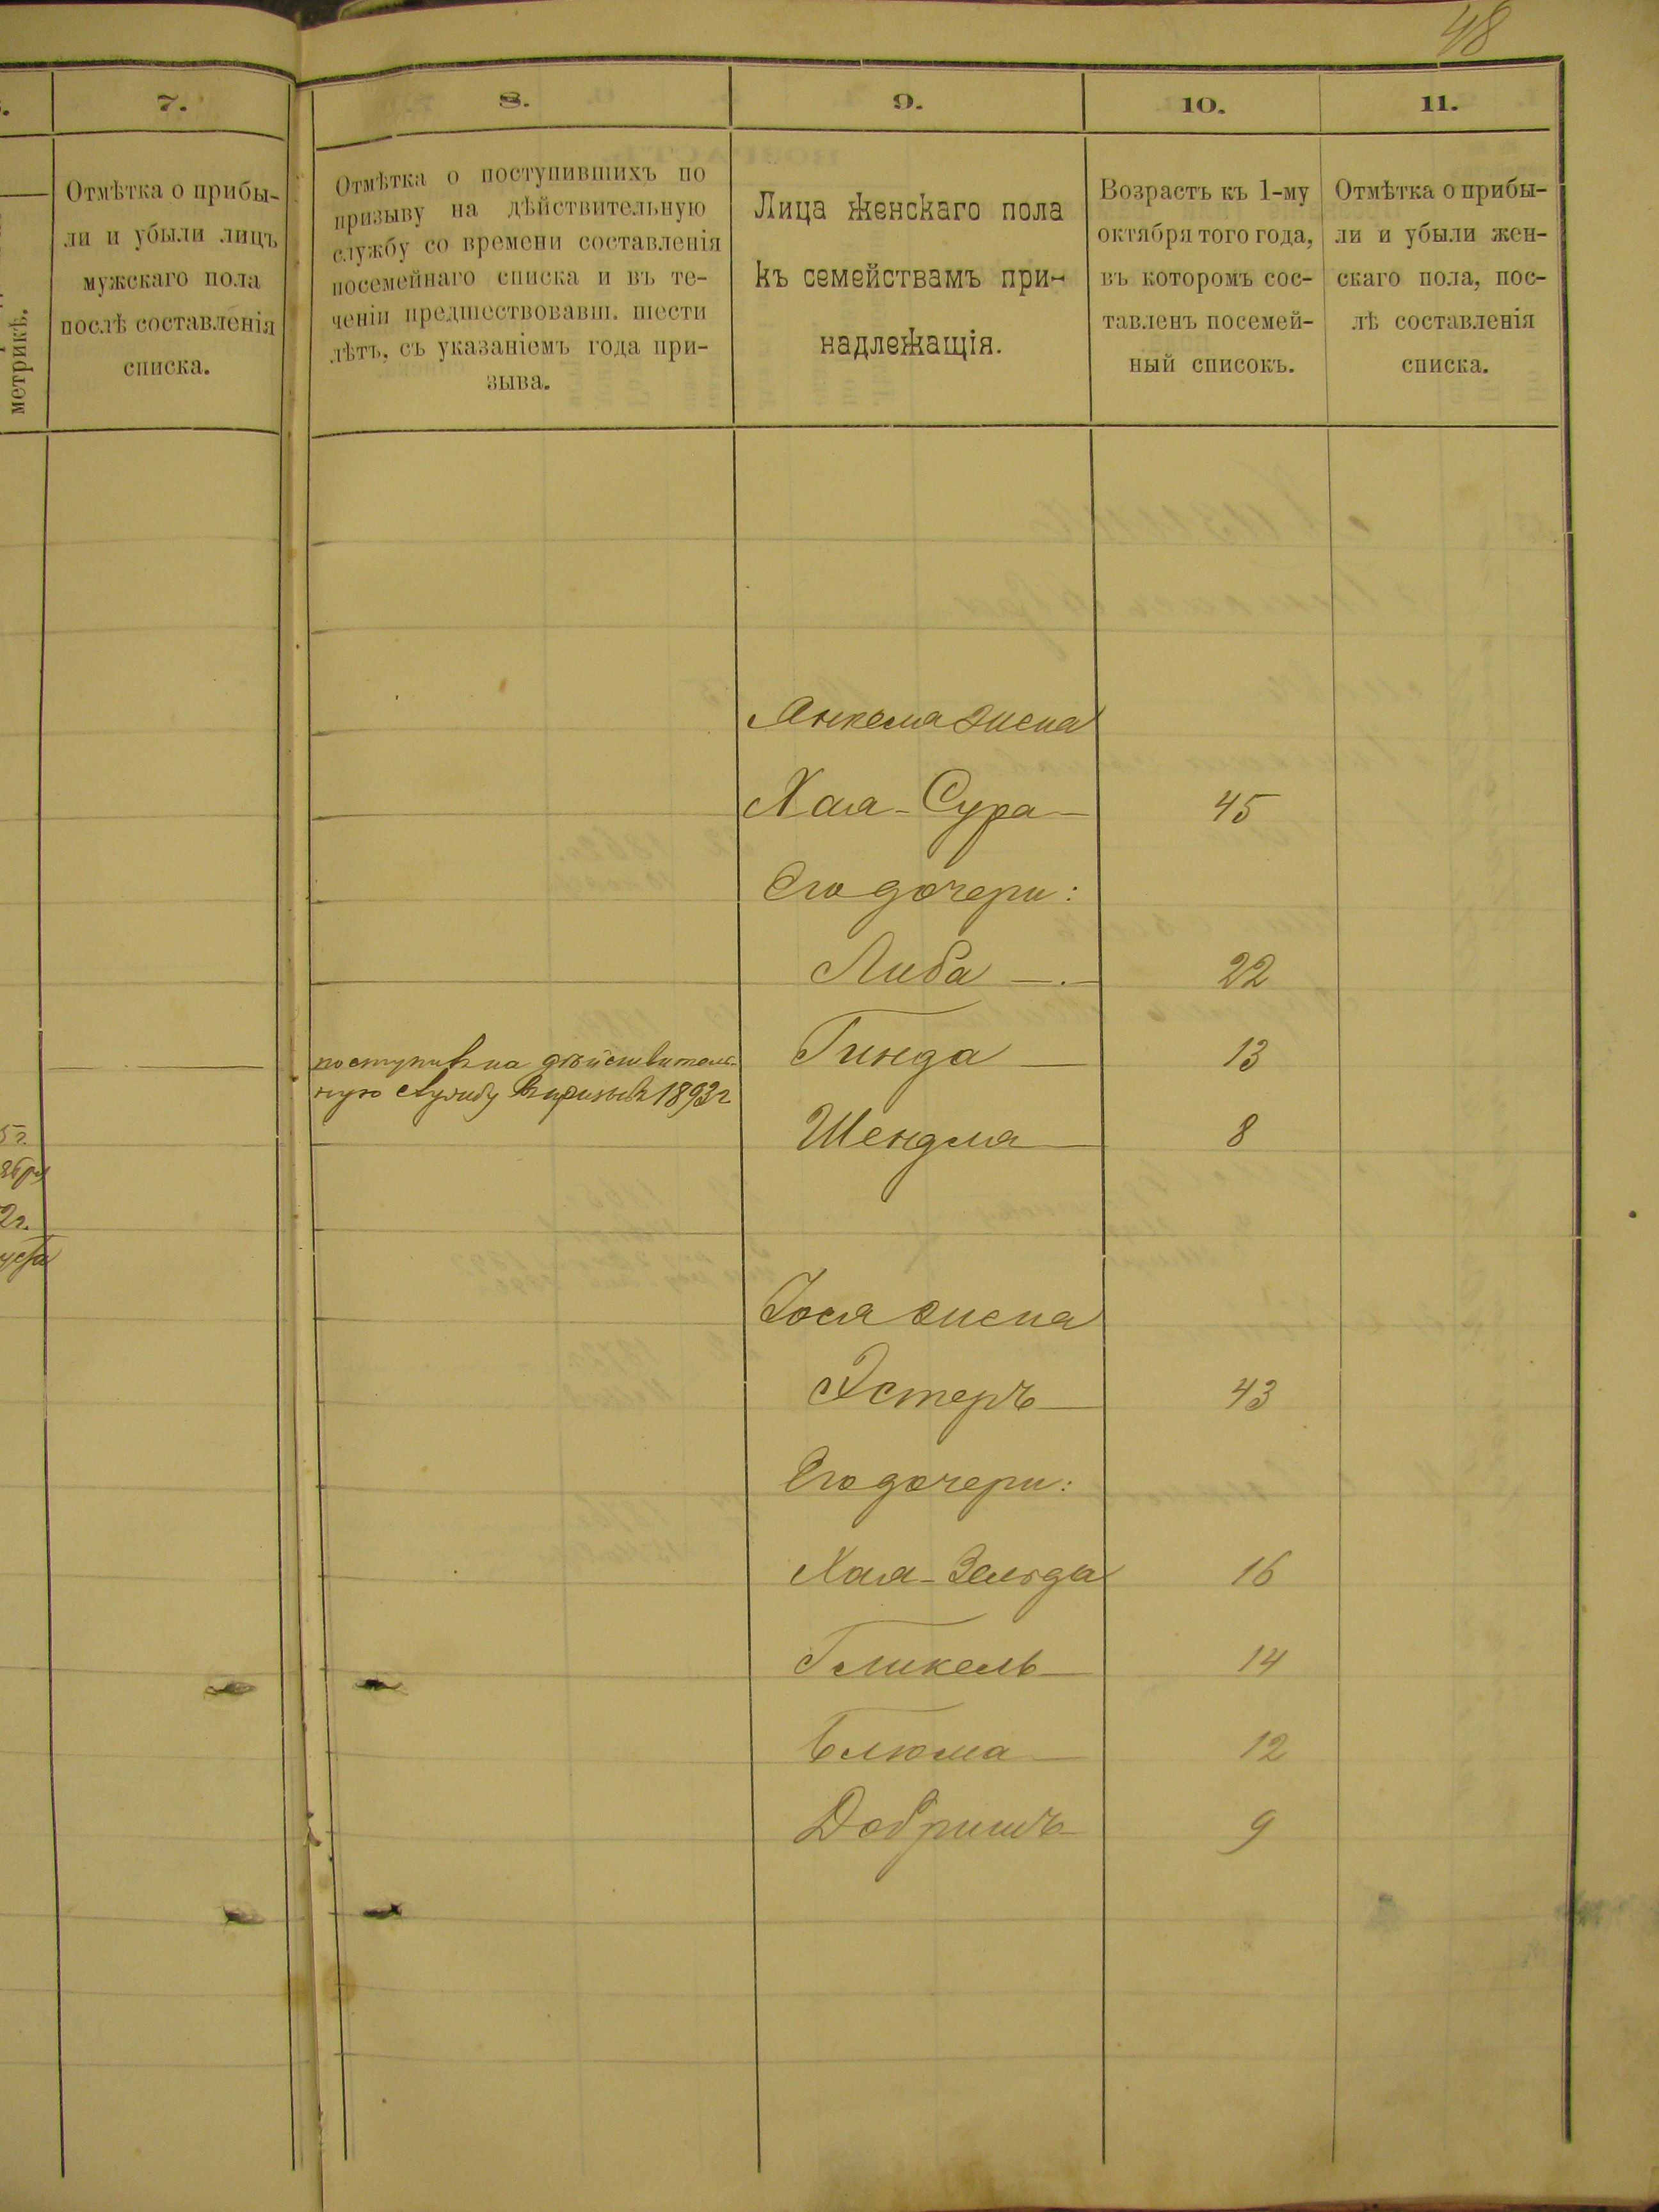 48
7.
8.
9.
10.
11.
метрикѣ.
Отмѣтка о прибы-
ли и убыли лицъ
мужскаго пола
послѣ составленія
списка.
Отмѣтка о поступившихъ по
призыву на дѣйствительную
службу со времени составленія
посемейнаго списка и въ те-
ченіи предшествовавш. шести
лѣтъ, съ указаніемъ года при-
зыва.
Лица женскаго пола
къ семействамъ при-
надлежащія.
Возрастъ къ 1-му
октября того года,
въ которомъ сос-
тавленъ посемей-
ный списокъ.
Отмѣтка о прибы-
ли и убыли жен-
скаго пола, пос-
лѣ составленія
списка.
Янкеля жена
Хая-Сура 45
Его дочери:
Либа 22
поступив на дѣйствитель-
ную службу въ призывъ 1893 г
Гинда 13
Шендля 8
Іося жена
Эстеръ 43
Его дочери:
Хая-Зельда 16
Гликель 14
Блюма 12
Добришъ 9